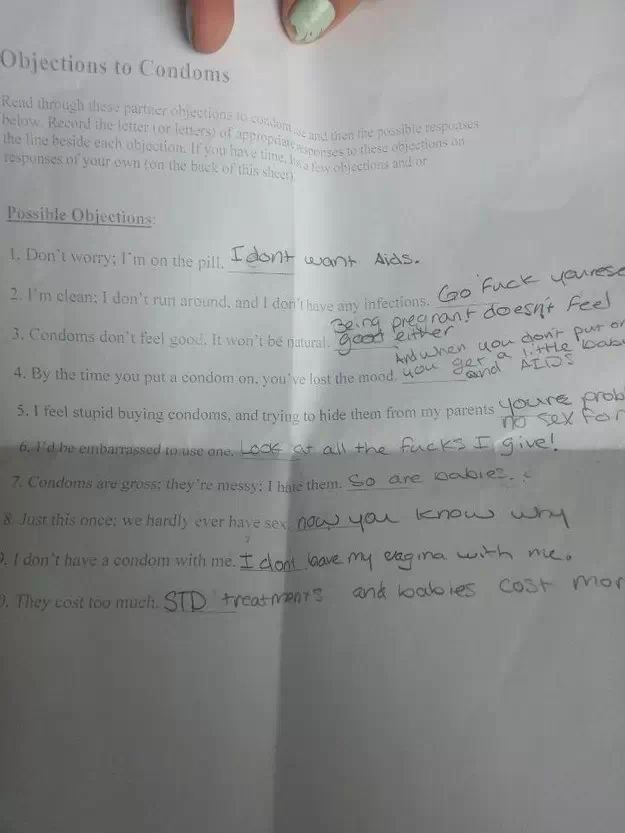 Objections to Condoms
Read through these partner objections to condom use and then the possible responses
below. Record the letter (or letters) of appropriate responses to these objections on
the line beside each objection. If you have time, a few objections and or
responses of your own (on the back of this sheet).
Possible Objections:
1. Don't worry; I'm on the pill. I dont want Aids.
2. I'm clean; I don't run around, and I don't have any infections. Go fuck yourse
3. Condoms don't feel good. It won't be natural. Being pregnant doesn't feel
good either
4. By the time you put a condom on, you've lost the mood. And when you don't put on
you get a little bab
and AIDS
5. I feel stupid buying condoms, and trying to hide them from my parents youre prob
no sex for
6. I'd be embarrassed to use one. Look at all the fucks I give!
7. Condoms are gross; they're messy; I hate them. So are babies.
8. Just this once; we hardly ever have sex. now you know why
9. I don't have a condom with me. I dont have my vagina with me.
0. They cost too much. STD treatments and babies cost mor